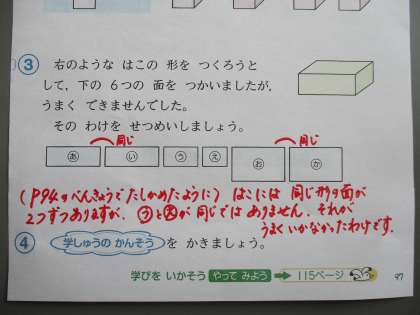 ③ 右のような はこの 形を つくろうと
して,下の 6つの 面を つかいましたが,
うまく できませんでした。
その わけを せつめいしましょう。
同じ 同じ
あ い う え お か
(P94のべんきょうでたしかめたように) はこには 同じ形の面が
2つずつありますが、うとえが同じでは ありません。それが
うまくいかなかったわけです。
④ 学しゅうの かんそう を かきましょう。
学びを いかそう やって みよう 115ページ
97